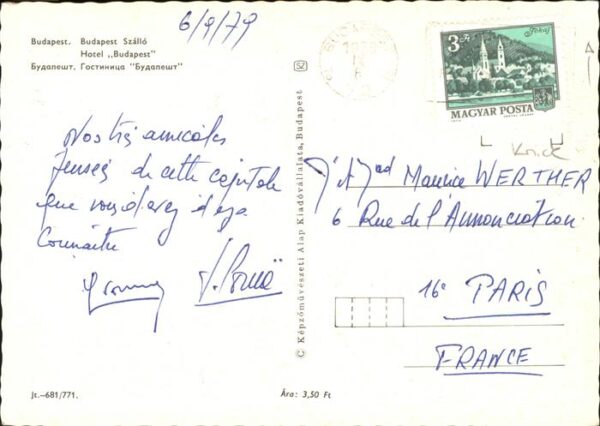 6/9/79
Budapest. Budapest Szálló
Hotel „Budapest"
Будапешт. Гостиница "Будапешт"
SZ
3 Ft
Tokaj
MAGYAR POSTA
Nos très amicales
pensées de cette capitale
que vous devez déjà
connaître
© Képzőművészeti Alap Kiadóvállalata, Budapest
Maurice WERTHER
6 Rue de l'Annonciation
16e PARIS
FRANCE
Jt.–681/771.
Ára: 3,50 Ft